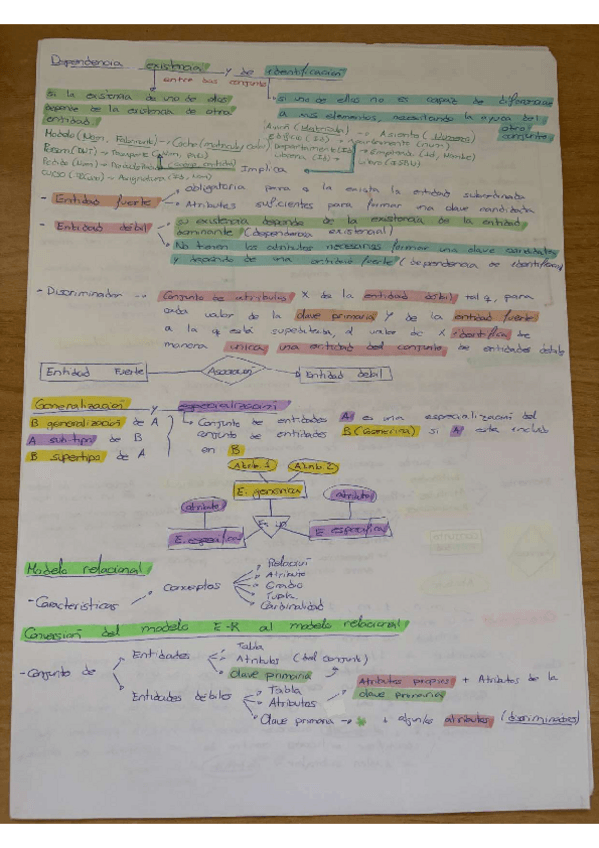 Dependencia existencia y de identificación
entre dos conjuntos
Si la existencia de uno de ellos
depende de la existencia de otra
entidad.
si uno de ellos no es capaz de diferenciar
a sus elementos, necesitando la ayuda del
otro conjunto
Modelo (Nom, Fabricante) → Coche (matricula y color)
Avión (Matricula) → Asiento (Numero)
Edificio (Id) → Apartamento (num)
Departamento (Id) → Empleado (Id, Nombre)
Implica
- Entidad fuerte
obligatoria para q la exista la entidad subordinada
Atributos suficientes para formar una clave candidata
- Entidad débil
su existencia depende de la existencia de la entidad
dominante (dependencia existencial)
No tienen los atributos necesarios formar una clave candidata
y depende de una entidad fuerte (dependencia de identificación)
- Discriminador → Conjunto de atributos X de la entidad débil tal q, para
cada valor de la clave primaria Y de la entidad fuerte
a la q está supeditada, el valor de X identifica de
manera única una entidad del conjunto de entidades débiles
Entidad Fuerte
Asociación
Entidad debil
Generalización y especialización
B generalización de A
A subtipo de B
B supertipo de A
Conjunto de entidades A es una especialización del
conjunto de entidades B (Generica) si A esta incluido
en B
Atrib. 1
Atrib. 2
E. generica
atributo
atributo
Es un
E. especifica
E. especifica
Modelo relacional
- Caracteristicas → Conceptos
Relación
Atributo
Grado
Tupla
Cardinalidad
Conversión del modelo E-R al modelo relacional
- Conjunto de
Entidades
Tabla
Atributos (del conjunto)
Clave primaria
Entidades debiles
Tabla
Atributos
Atributos propios + Atributos de la
clave primaria
Clave primaria → * + algunos atributos (discriminadores)